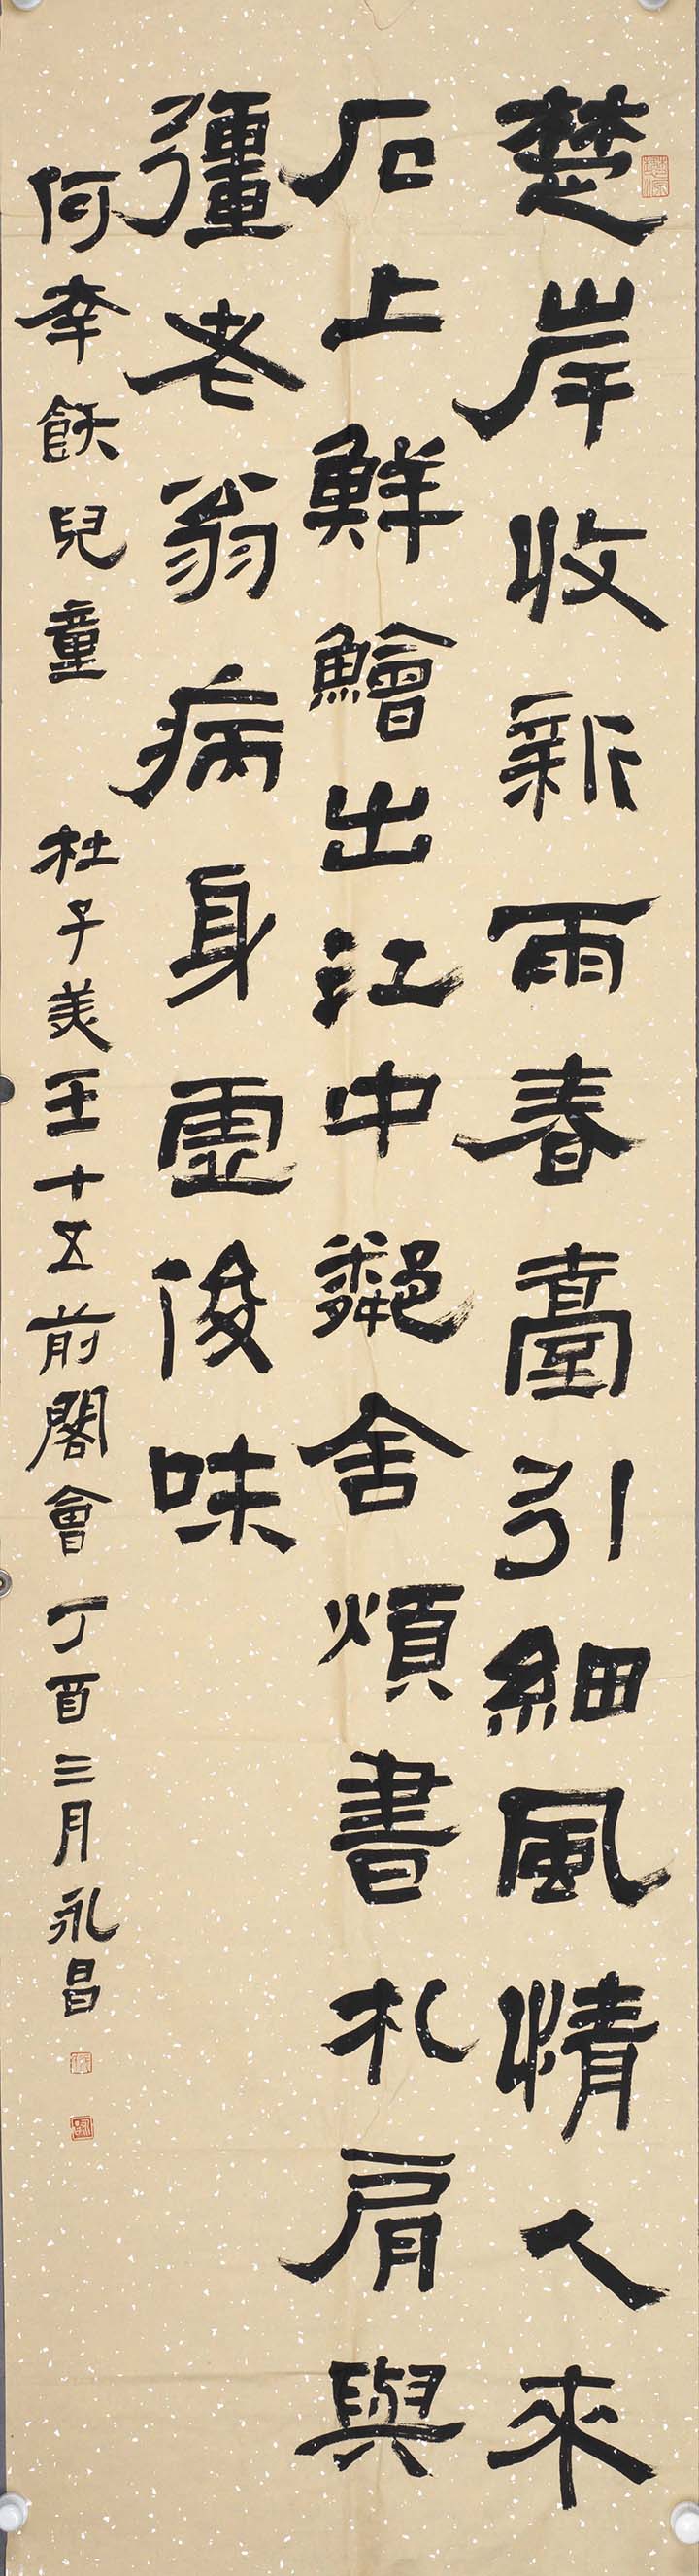 楚岸收新雨春臺引細風情人來
石上鮮鱠出江中鄰舍煩書札肩與
彊老翁病身虛俊味
何幸飫兒童 杜子美王十五前閣會 丁酉三月 永昌